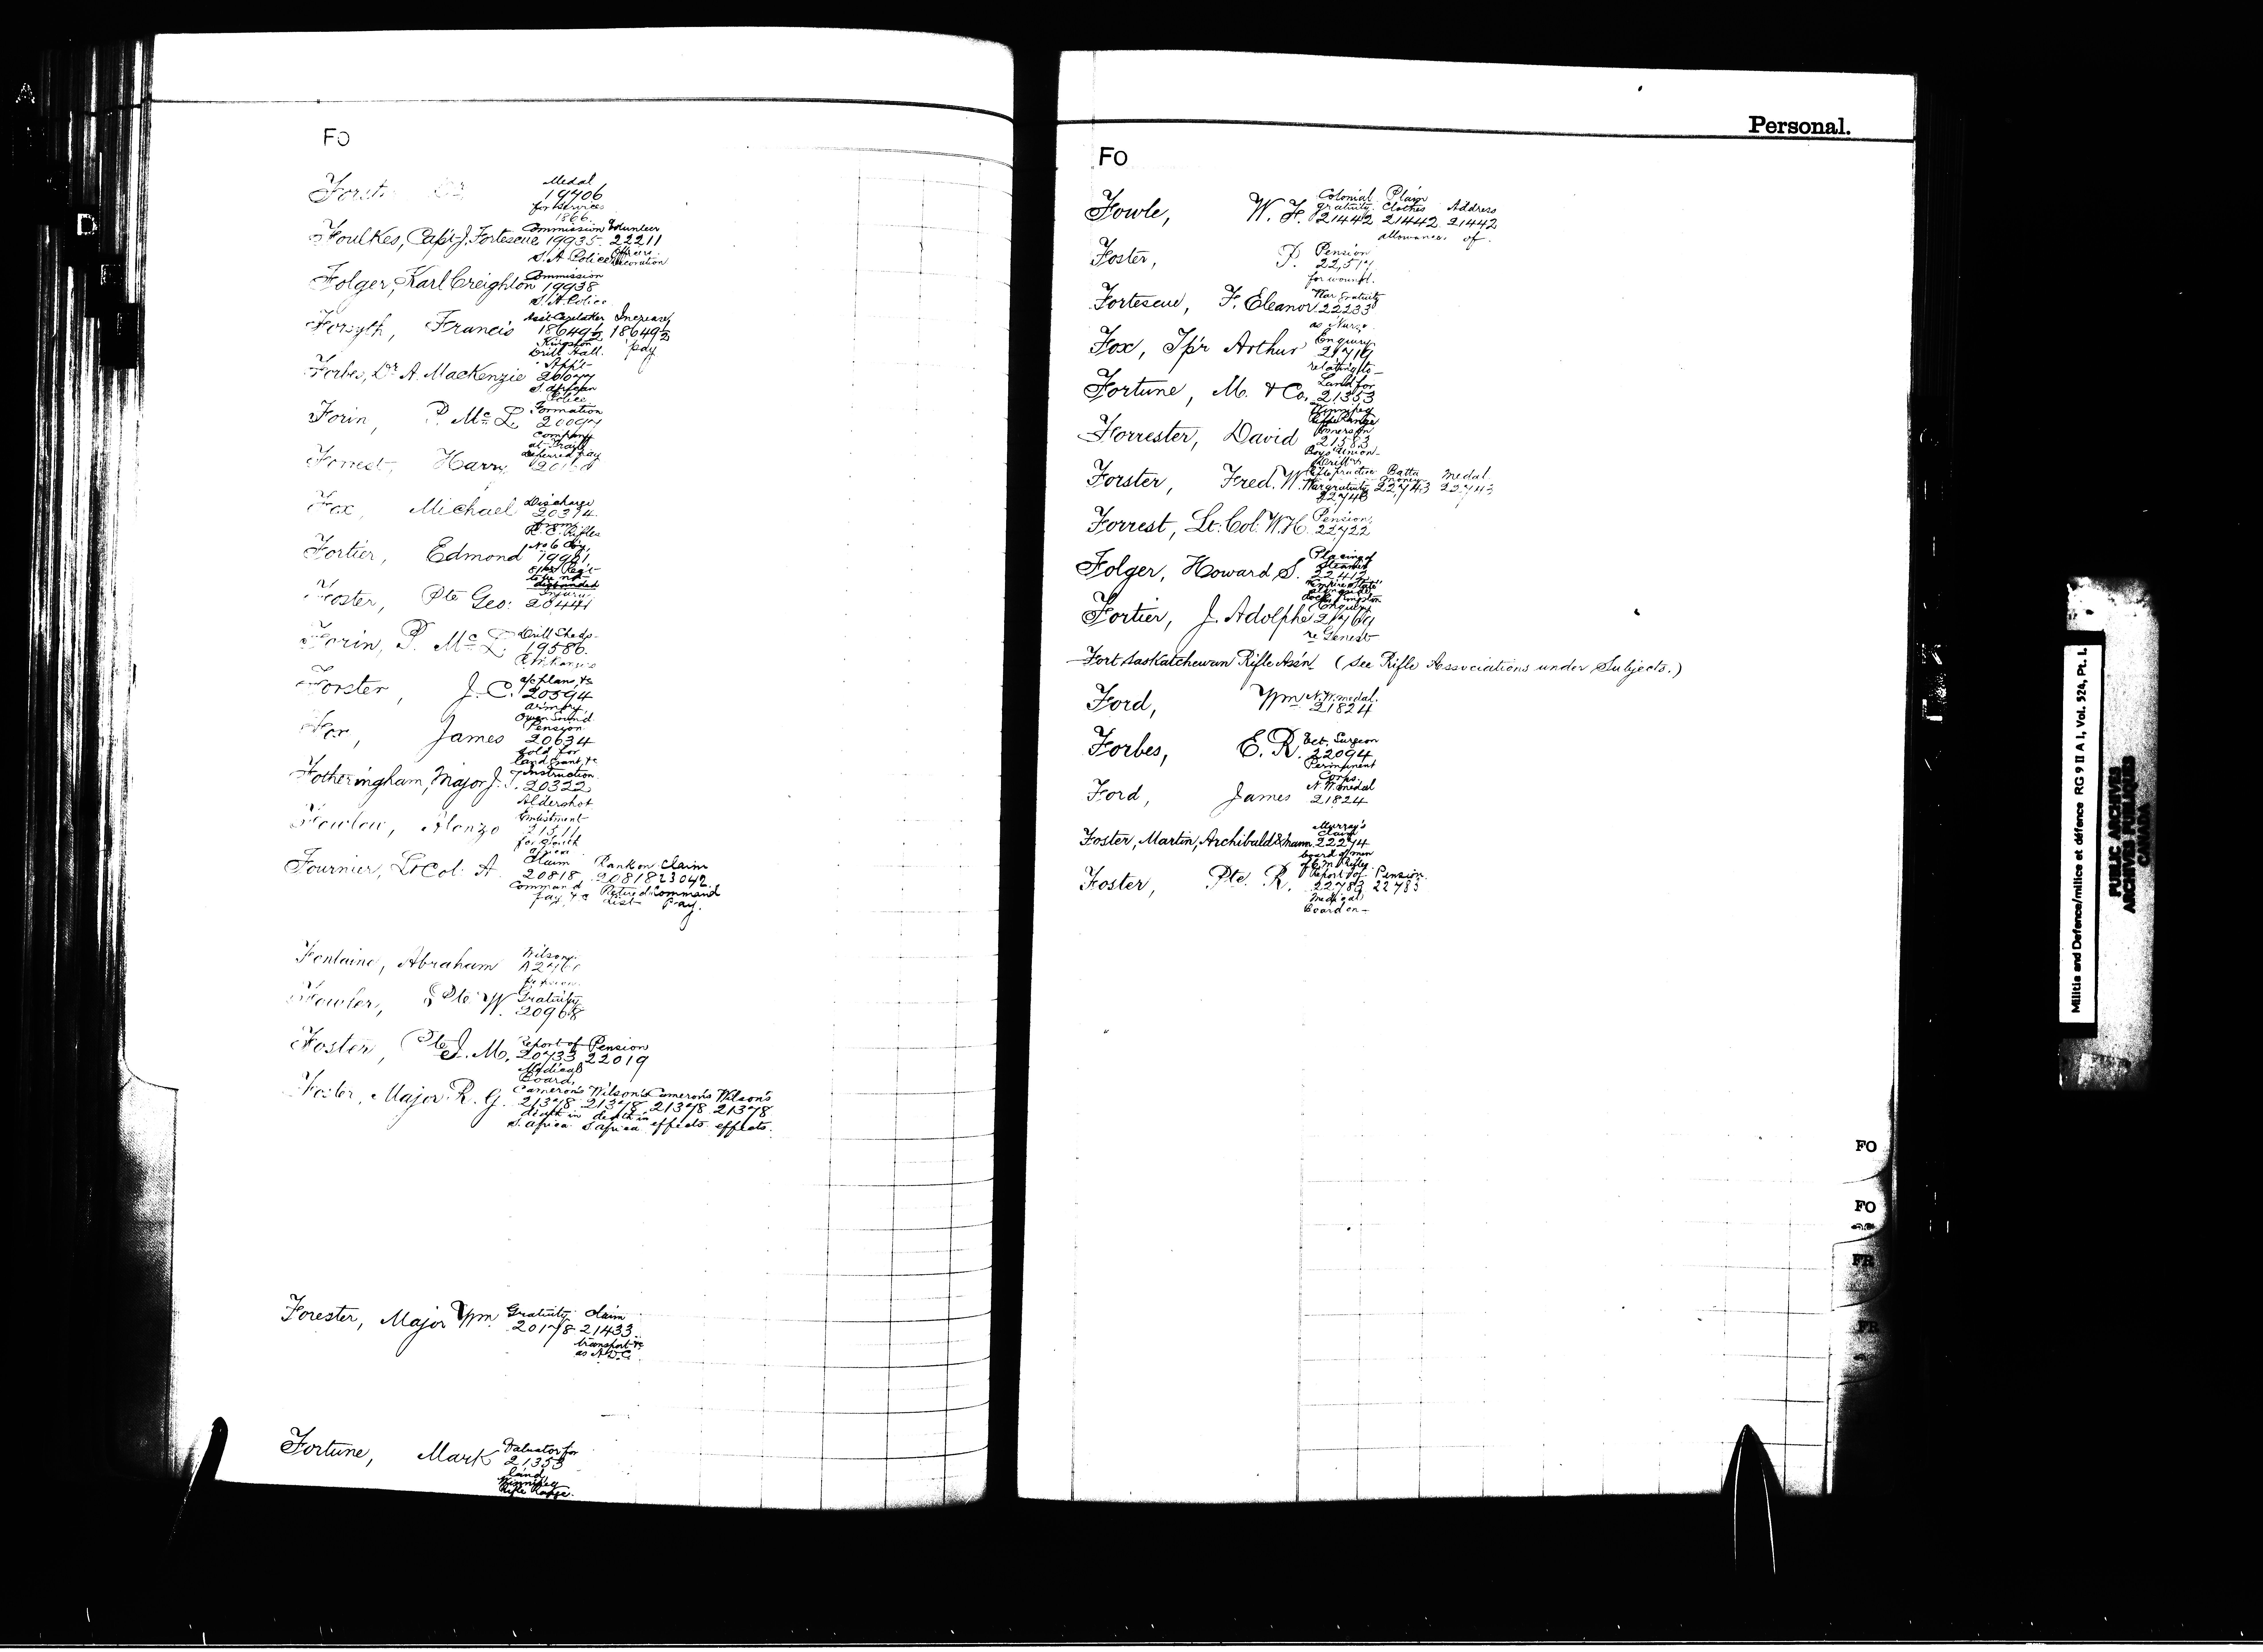 FO
Medal
19406
for services
1866.
Commission Volunteer
Foulkes, Capt. J. Fortescue 19935 22211
S. A. Police Officers Decoration
Commission
Folger, Karl Creighton 19938
S. A. Police
Ass't Caretaker Increase
Forsyth, Francis 18649½ 18649½
Kingston pay
Drill Hall.
App't
Forbes, Dr A. MacKenzie 20077
S. African
Police
Formation
Forin, P. Mc L. 20097
Company
at Trail
deferred pay
Forrest, Harry
Discharge
Fox, Michael 20374
from
R. C. Rifles
No 6 Coy.
Fortier, Edmond 19981
81st Reg't
to be not
disbanded
Injuries
Foster, Pte Geo: 20441
Drill Sheds
Forin, P. Mc L. 19586
a/c plans, &c
Forster, J. C. 20594
armory,
Owen Sound
Pension
James 20634
land grant, &c
Instruction
Fotheringham, Major J. T. 20322
Aldershot
Enlistment
Alonzo
for South
Africa
Claim Rank on Claim
Fournier, Lt Col: A. 20818 20818 23042
Command Retired Command
pay &c list Pay.
Wilson
Fontaine, Abraham
Gratuity
Fowler, Pte W. 20968
Report of Pension
Foster, Pte J. M. 20733 22019
Medical
Board,
Cameron's Wilson's Cameron's Wilson's
Foster, Major R. G. 21378 21378 21378 21378
death in death in
S. Africa S Africa effects effects.
Gratuity Claim
Forester, Major Wm 20178 21433
transport &c
as A.D.C.
Valuator for
Fortune, Mark 21353
land
Winnipeg
Rifle Range.
Personal.
FO
Colonial Plain
gratuity Clothes Address
Fowle, W. F. 21442 21442 21442
allowance of
Pension
Foster, P. 22517
for wound.
War Gratuity
Fortescue, F. Eleanor 22233
as Nurse
Enquiry
Fox, Tp'r Arthur 21719
relating to
Land for
Fortune, M. & Co. 21353
Winnipeg
Rifle Range
Emerson
Forrester, David 21583
Boys Union
Drill &
Rifle Practice Batta Medal
money
Forster, Fred. W. War gratuity 22743 22743
22743
Pension
Forrest, Lt: Col: W. H. 22722
Placing of
Steamer
Folger, Howard S. 22412
"Empire State"
Enquiry
Fortier, J. Adolphe 21761
re Genest
Fort Saskatchewan Rifle Ass'n. (See Rifle Associations under Subjects.)
N. W. medal
Ford, Wm 21824
Vet. Surgeon
Forbes, E. R. 22094
Permanent
Corps
N. W. medal
Ford, James 21824
Murray's
Claim
Foster, Martin, Archibald & Mann. 22274
board of men
of C. M. Rifles
Report of Pension
Foster, Pte. R. 22783 22783
Medical
Board on
FO
FO
FR
FR
Militia and Defence/milice et défence RG 9 II A 1, Vol. 524, Pt. I.
PUBLIC ARCHIVES
ARCHIVES PUBLIQUES
CANADA